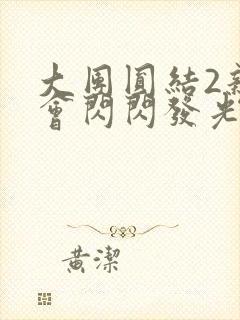 大團圓結2親
會閃閃發光
黃潔